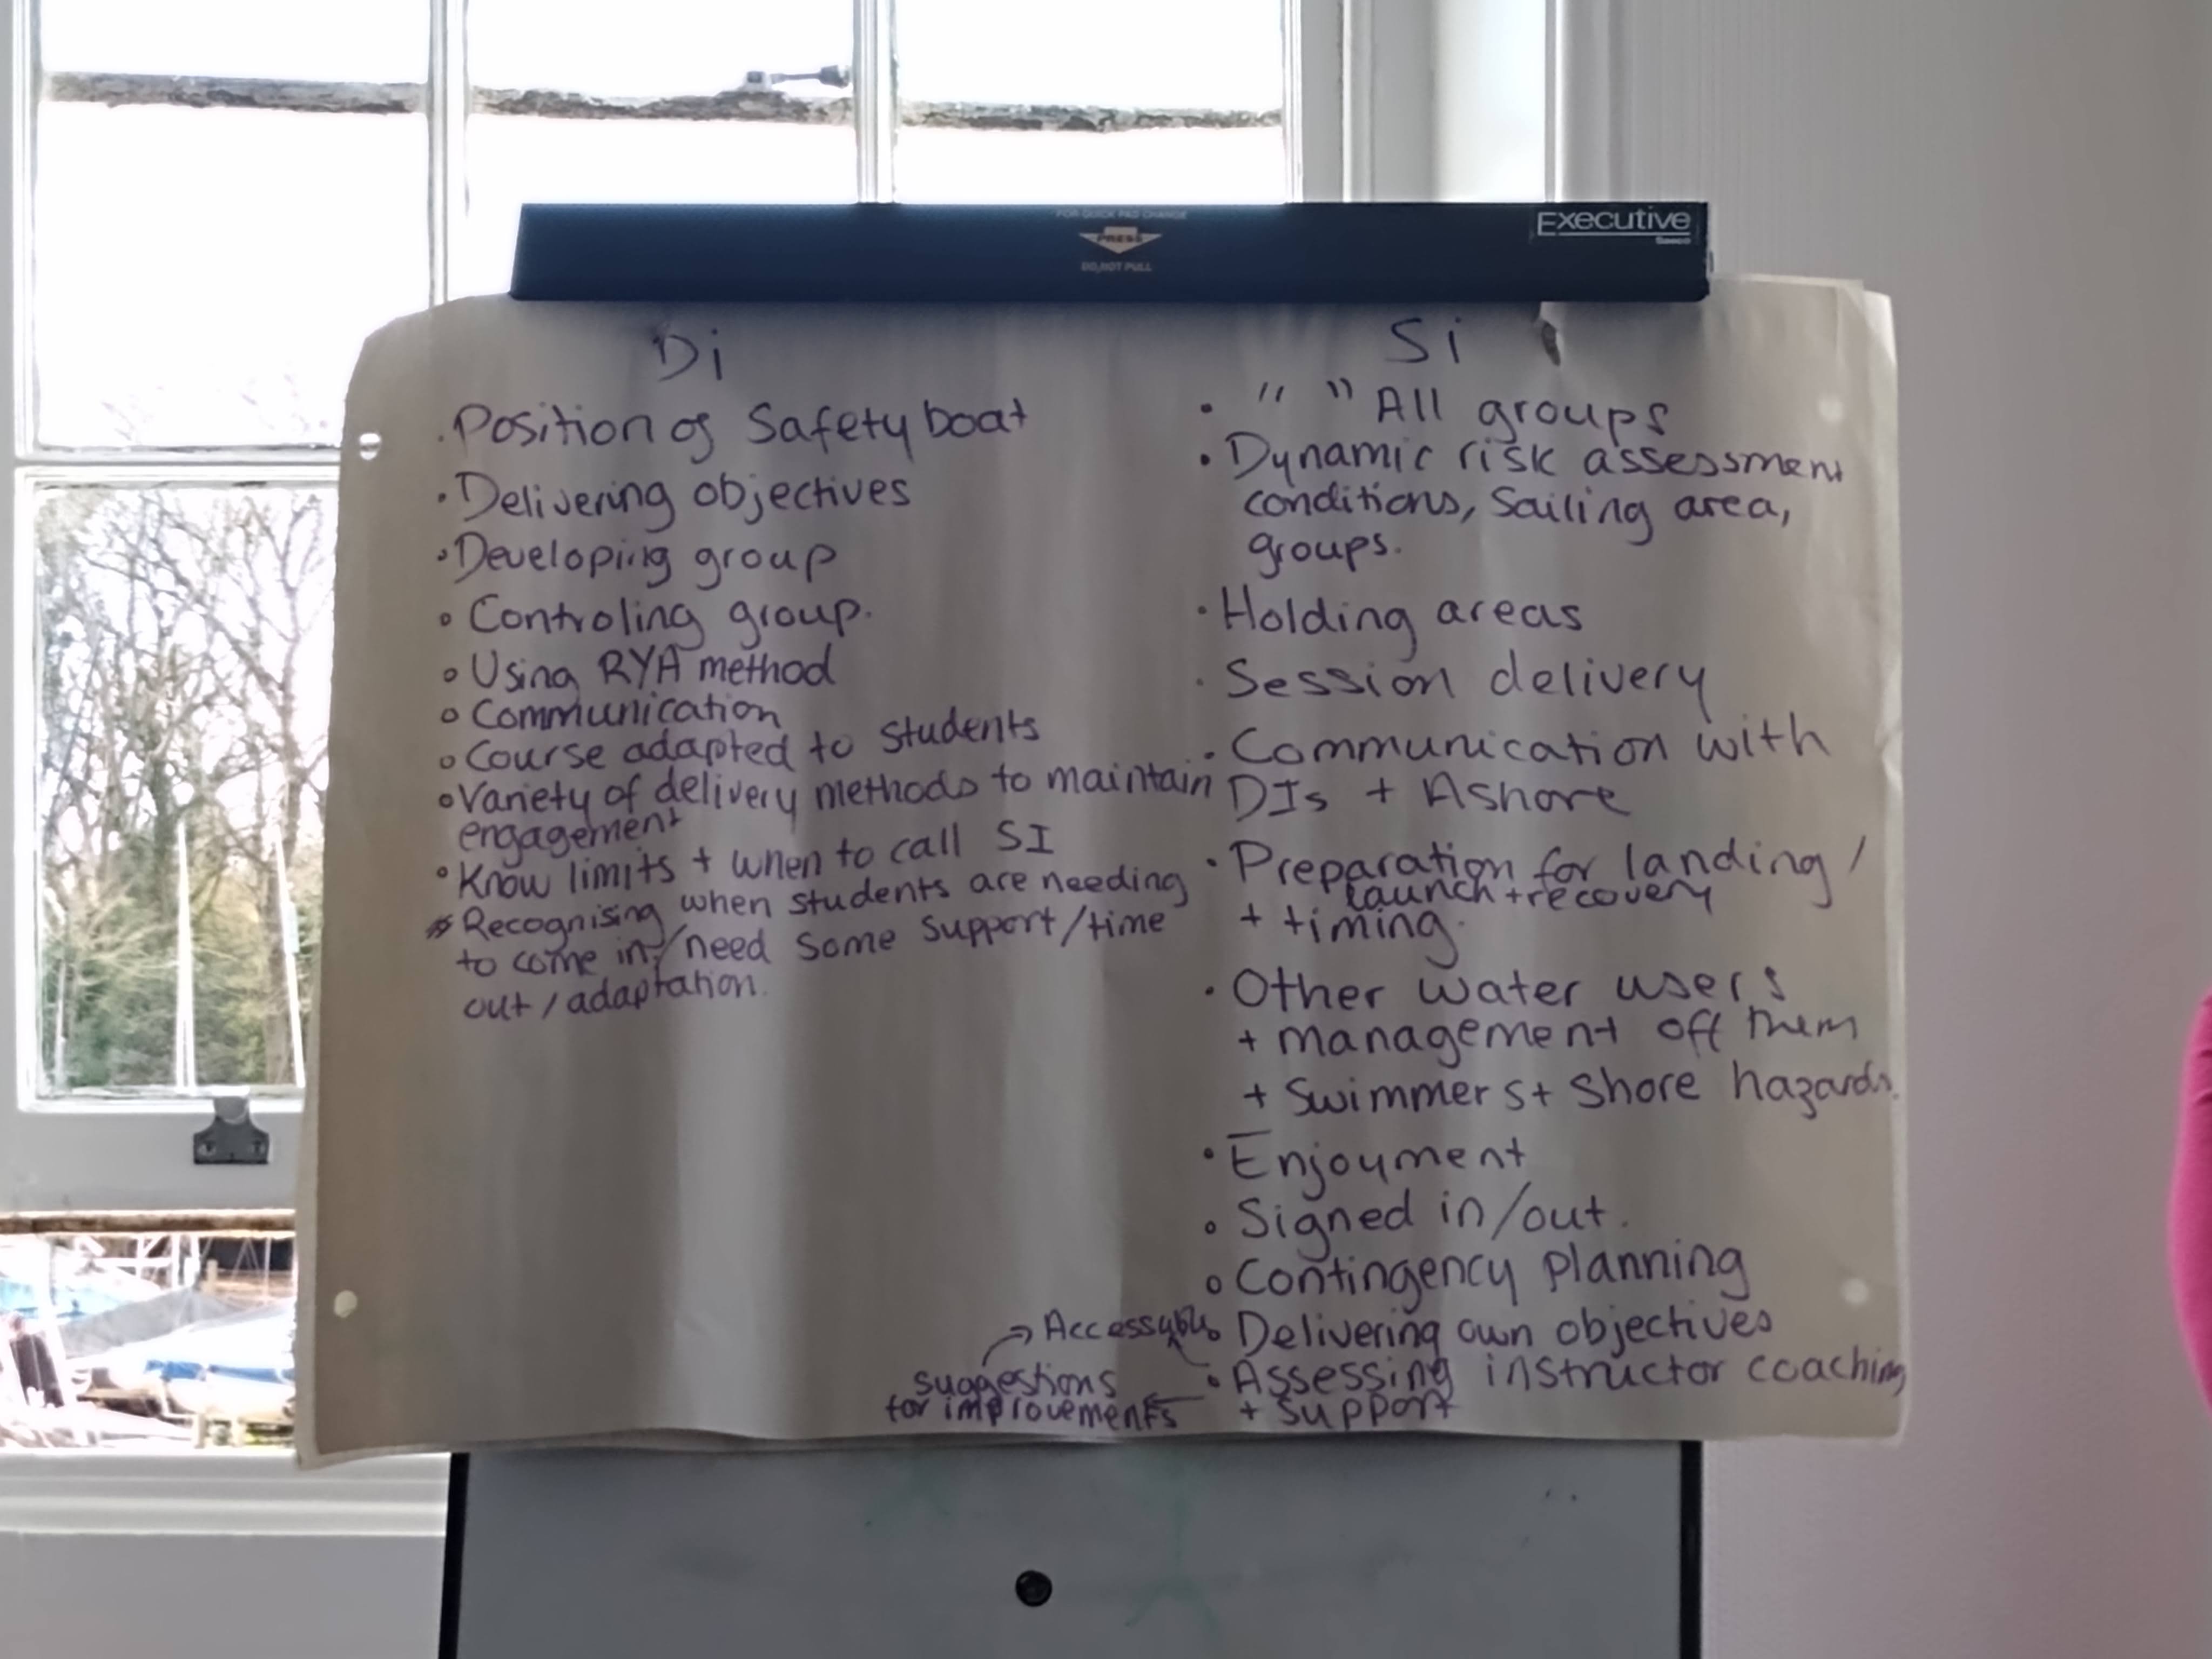 FOR QUICK PAD CHANGE
PRESS
DO NOT PULL
Executive
Di
. Position of Safety boat
. Delivering objectives
. Developing group
o Controling group.
o Using RYA method
o Communication
o Course adapted to students
o Variety of delivery methods to maintain
engagement
o Know limits + when to call SI
* Recognising when students are needing
to come in/need some support/time
out/adaptation.
Si
. " " All groups
. Dynamic risk assessment
conditions, Sailing area,
groups.
. Holding areas
. Session delivery
. Communication with
DIs + Ashore
. Preparation for landing /
launch + recovery
+ timing.
. Other water users
+ management off them
+ Swimmers + Shore hazards.
. Enjoyment
o Signed in/out.
o Contingency planning
o Delivering own objectives
o Assessing instructor coaching
+ support
→ Accessable
suggestions
for improvements